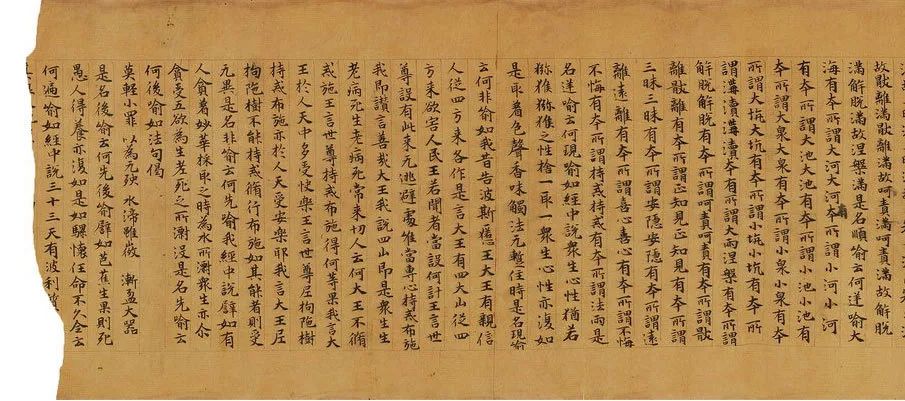 故猒離滿猒離滿故呵責滿呵責滿故解脫
滿解脫滿故涅槃滿是名順喻云何逆喻大
海有夲所謂大河大河有夲所謂小河小河
有夲所謂大池大池有夲所謂小池小池有
夲所謂大泉大泉有夲所謂小泉小泉有夲
所謂大坑大坑有夲所謂小坑小坑有夲所
謂溝瀆溝瀆有夲所謂大雨涅槃有夲所謂
解脫解脫有夲所謂呵責呵責有夲所謂猒
離猒離有夲所謂正知見正知見有夲所謂
三昧三昧有夲所謂安隱安隱有夲所謂遠
離遠離有夲所謂喜心喜心有夲所謂不悔
不悔有夲所謂持戒持戒有夲所謂法雨是
名逆喻云何現喻如經中說眾生心性猶若
猕猴猕猴之性捨一取一眾生心性亦復如
是取著色聲香味觸法无暫住時是名現喻
云何非喻如我昔告波斯匿王大王有親信
人從四方來各作是言大王有四大山從四
方來欲害人民王若聞者當設何計王言世
尊設有此來无逃避處唯當專心持戒布施
我即讚言善哉大王我說四山即是眾生生
老病死生老病死常來切人云何大王不脩
戒施王言世尊持戒布施得何等果我言大
王於人天中多受快樂王言世尊尼拘陀樹
持戒布施亦於人天受安樂耶我言大王尼
拘陀樹不能持戒脩行布施如其能者則受
无異是名非喻云何先喻我經中說譬如有
人貪著妙華採取之時為水所漂眾生亦尒
貪著五欲為生老死之所漂沒是名先喻云
何後喻如法句偈
莫輕小罪 以為无殃 水渧雖微 漸盈大器
是名後喻云何先後喻譬如芭蕉生果則死
愚人得養亦復如是如騾懷任命不久全云
何遍喻如經中說三十三天有波利